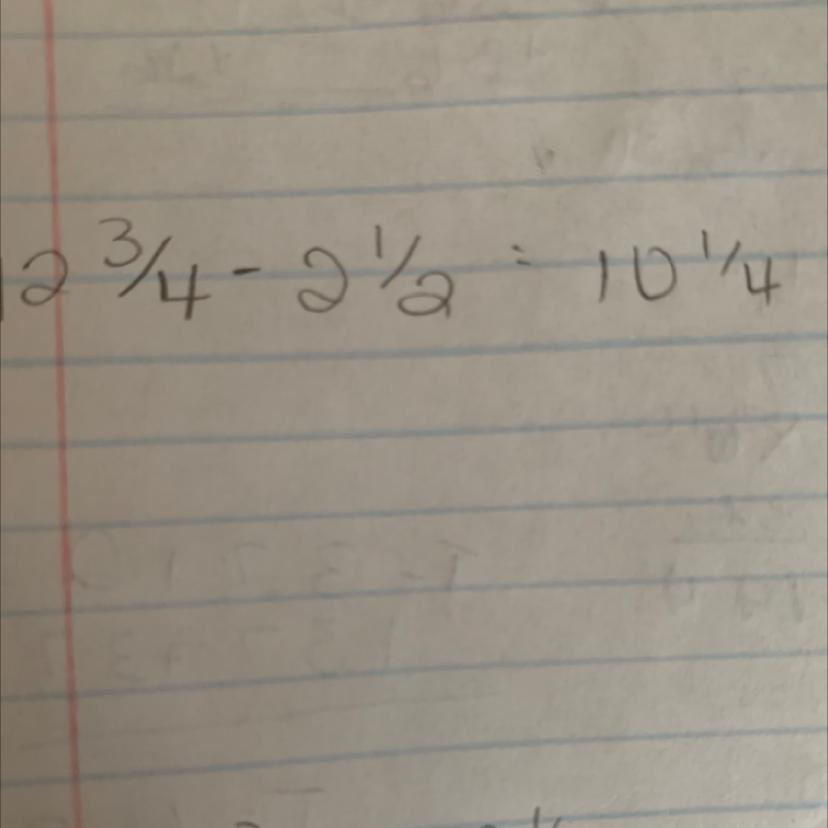 12 3/4 - 2 1/2 = 10 1/4